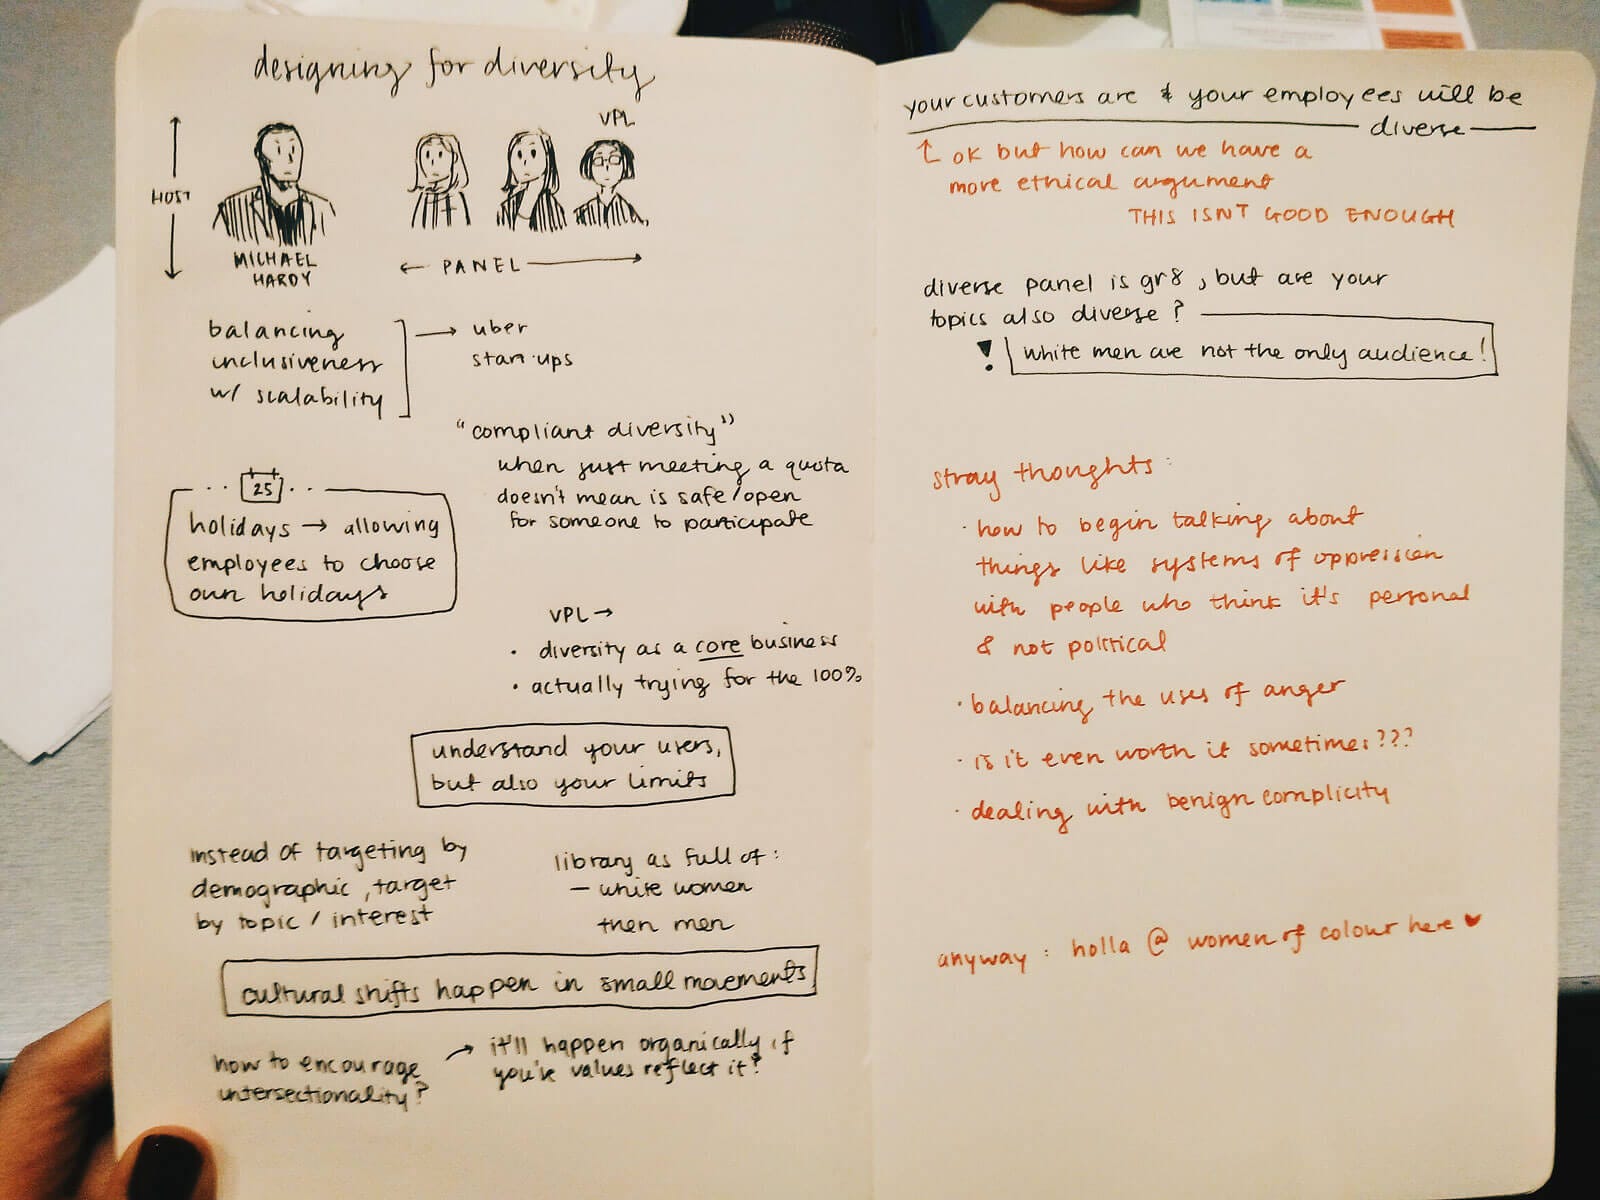 designing for diversity
HOST
MICHAEL
HARDY
VPL
← PANEL →
balancing
inclusiveness
w/ scalability
→ uber
startups
"compliant diversity"
when just meeting a quota
doesn't mean is safe/open
for someone to participate
25
holidays → allowing
employees to choose
own holidays
VPL →
• diversity as a core business
• actually trying for the 100%
understand your users,
but also your limits
instead of targeting by
demographic, target
by topic / interest
library as full of:
– white women
then men
cultural shifts happen in small movements
how to encourage
intersectionality?
→ it'll happen organically if
you've values reflect it?
your customers are & your employees will be
diverse
ok but how can we have a
more ethical argument
THIS ISNT GOOD ENOUGH
diverse panel is gr8, but are your
topics also diverse?
! white men are not the only audience!
stray thoughts:
• how to begin talking about
things like systems of oppression
with people who think it's personal
& not political
• balancing the uses of anger
• is it even worth it sometimes???
• dealing with benign complicity
anyway: holla @ women of colour here ♥